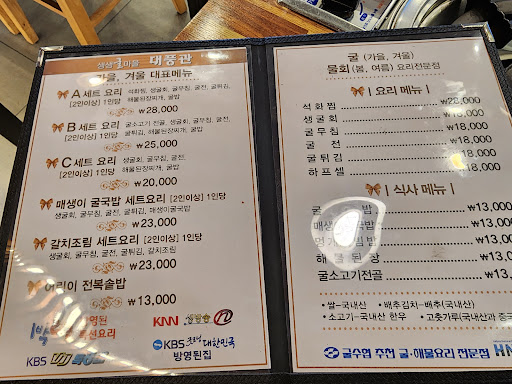 생생굴마을 대풍관
가을, 겨울 대표메뉴
A 세트 요리 석화찜, 생굴회, 굴무침, 굴전, 굴튀김,
[2인이상] 1인당 해물된장찌개, 굴밥
₩28,000
B 세트 요리 굴소고기 전골, 생굴회, 굴무침, 굴전,
[2인이상] 1인당 굴튀김, 해물된장찌개, 굴밥
₩25,000
C 세트 요리 생굴회, 굴무침, 굴전,
[2인이상] 1인당 해물된장찌개, 굴밥
₩20,000
매생이 굴국밥 세트요리 [2인이상] 1인당
생굴회, 굴무침, 굴전, 굴튀김, 매생이굴국밥
₩23,000
갈치조림 세트요리 [2인이상] 1인당
생굴회, 굴무침, 굴전, 굴튀김, 갈치조림
₩23,000
어린이 전복솥밥
₩13,000
KNN
KBS
KBS 대한민국
방영된집
굴 (가을, 겨울)
물회(봄, 여름) 요리전문점
요리 메뉴
석화찜 ₩28,000
생굴회 ₩18,000
굴무침 ₩18,000
굴전 ₩18,000
굴튀김 ₩18,000
하프셀 ₩18,000
식사 메뉴
굴 밥 ₩13,000
매생 밥 ₩13,000
밥 ₩13,000
해물된장 ₩13,000
굴소고기전골 ₩13
• 쌀-국내산 • 배추김치-배추(국내산)
• 소고기-국내산 한우 • 고춧가루(국내산과 중국
굴수협 추천 굴·해물요리 전문점